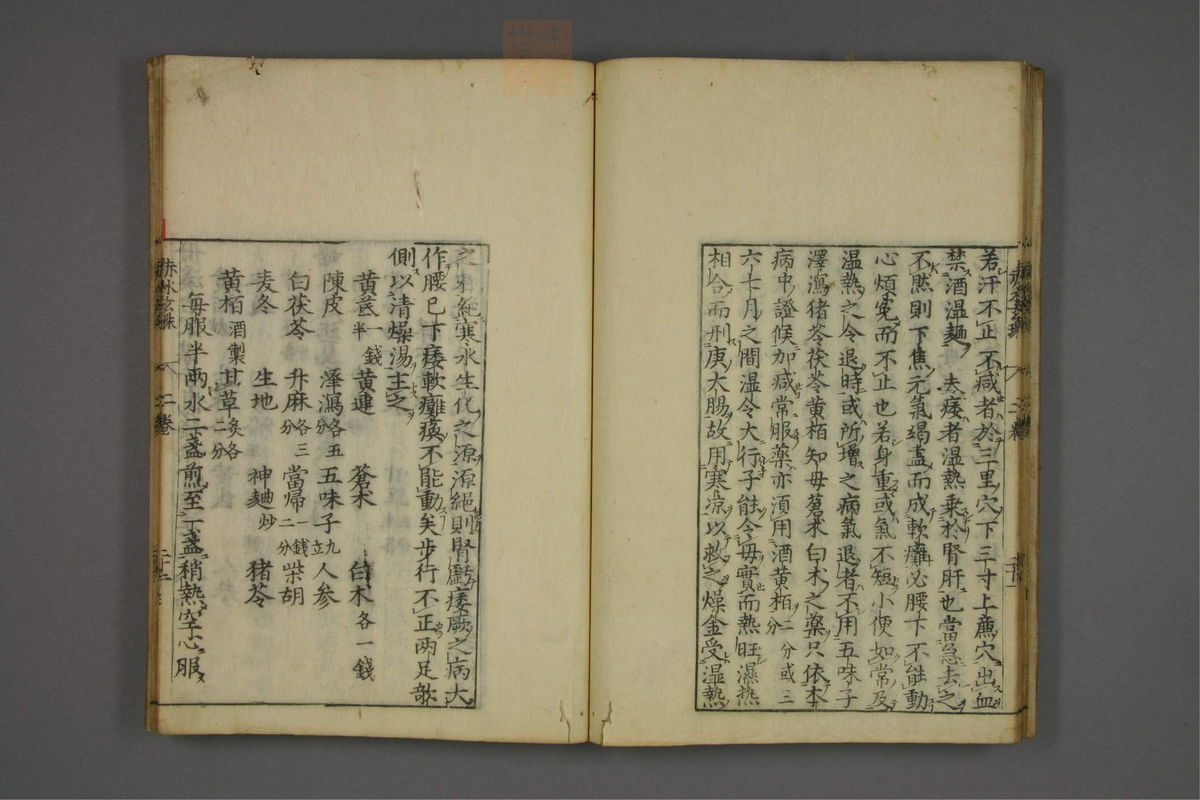 若汗不止不减者於三里穴下三寸上廉穴出血
禁酒温麺 夫痿者温熱乗於腎肝也當急去之
不然則下焦元氣竭盡而成軟癱必腰下不能動
心煩寃而不止也若身重或氣不短小便如常及
温熱之令退時或所增之病氣退者不用五味子
澤瀉猪苓茯苓黄栢知母蒼术白术之藥只依本
病中證候加减常服藥亦湏用酒黄栢二分或三分
六七月之間温令大行子能令母實而熱旺濕热
相合而刑庚大腸故用寒凉以救之燥金受湿熱
之 絕寒水生化之源源絕則腎虧痿厥之病大
作腰已下痿軟癱瘓不能動矣歩行不正两足欹
側以清燥湯主之
黄芪一錢半 黄連 蒼术 白术各一錢
陳皮 澤瀉各五分 五味子九立 人参
白茯苓 升麻各三分 當帰一錢二分 柴胡
麦冬 生地 神麯炒 猪苓
黄栢酒製 甘草炙各二分
毎服半两水二盞煎至一盞稍熱空心服
赤水玄珠 二巻